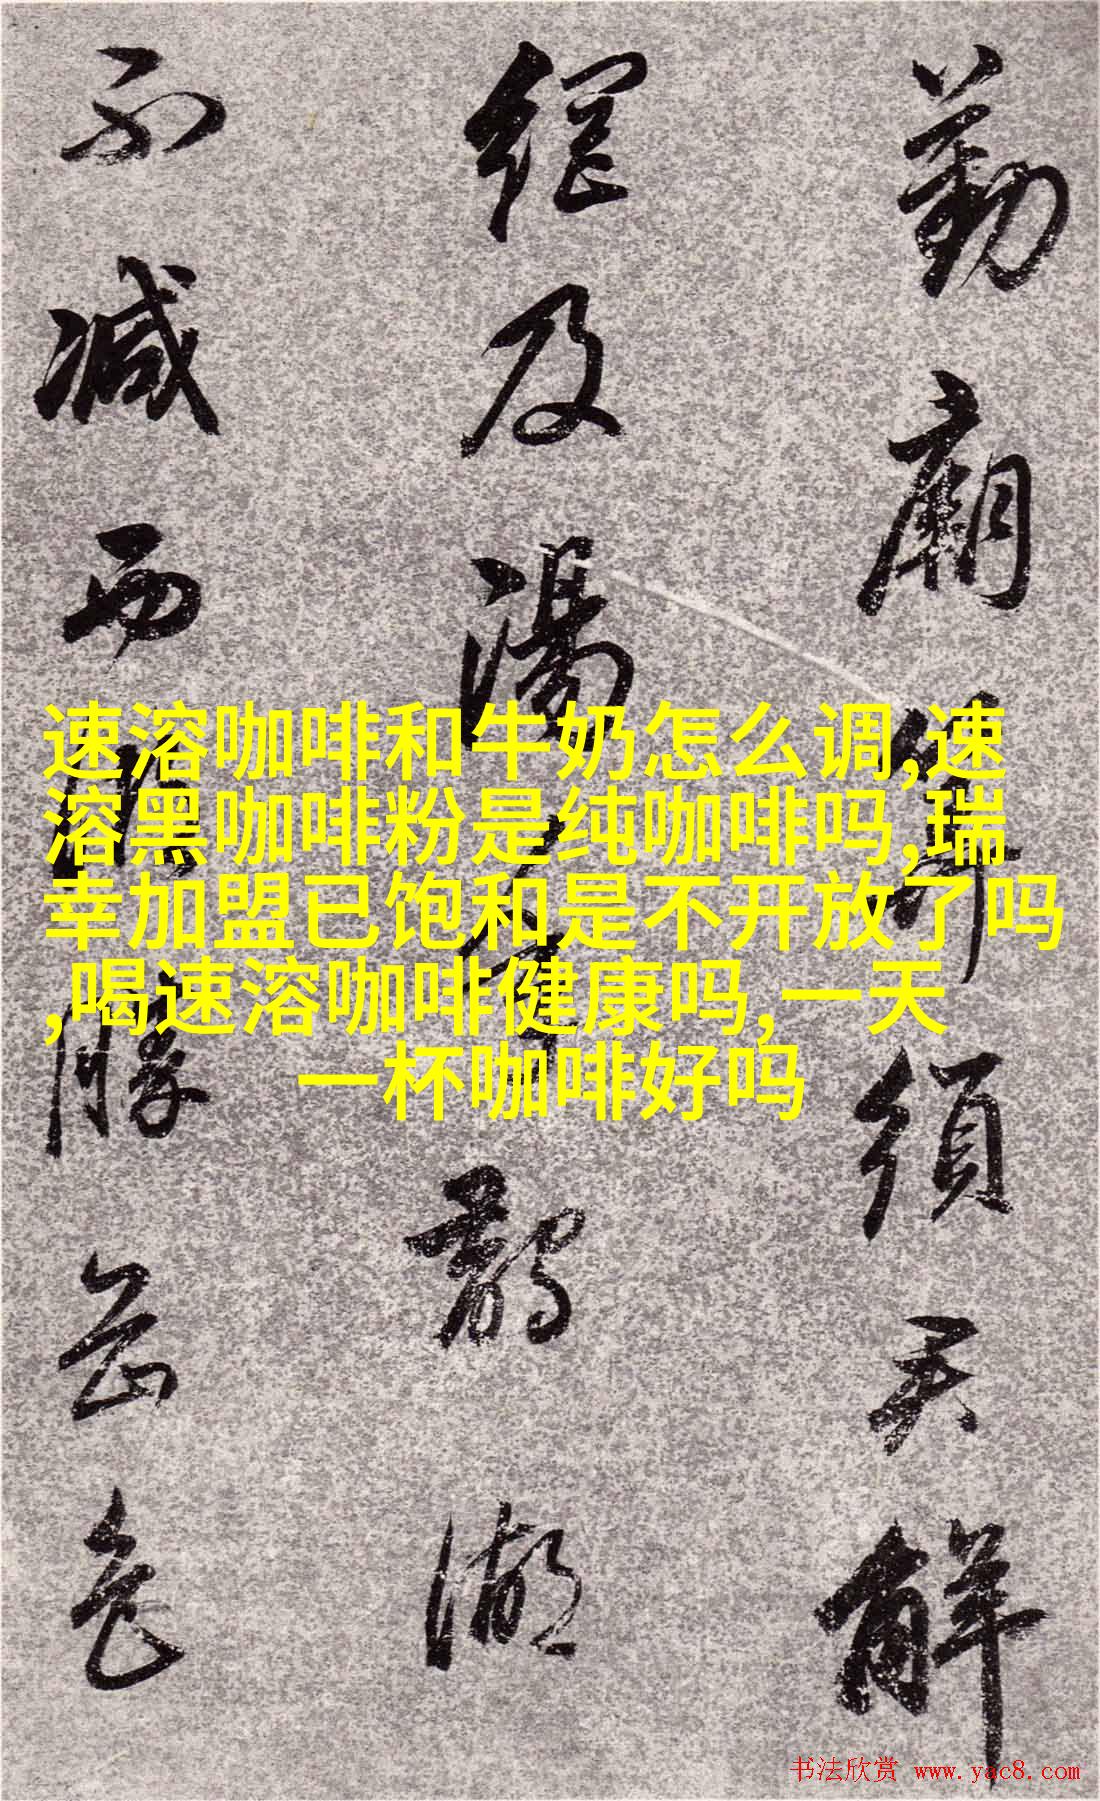 勤廟算須君解
網及湯
鵲湖
不減
西
勝岳色
速溶咖啡和牛奶怎么调,速
溶黑咖啡粉是纯咖啡吗,瑞
幸加盟已饱和是不开放了吗
,喝速溶咖啡健康吗, 一天
一杯咖啡好吗
书法欣赏 www.yac8.com